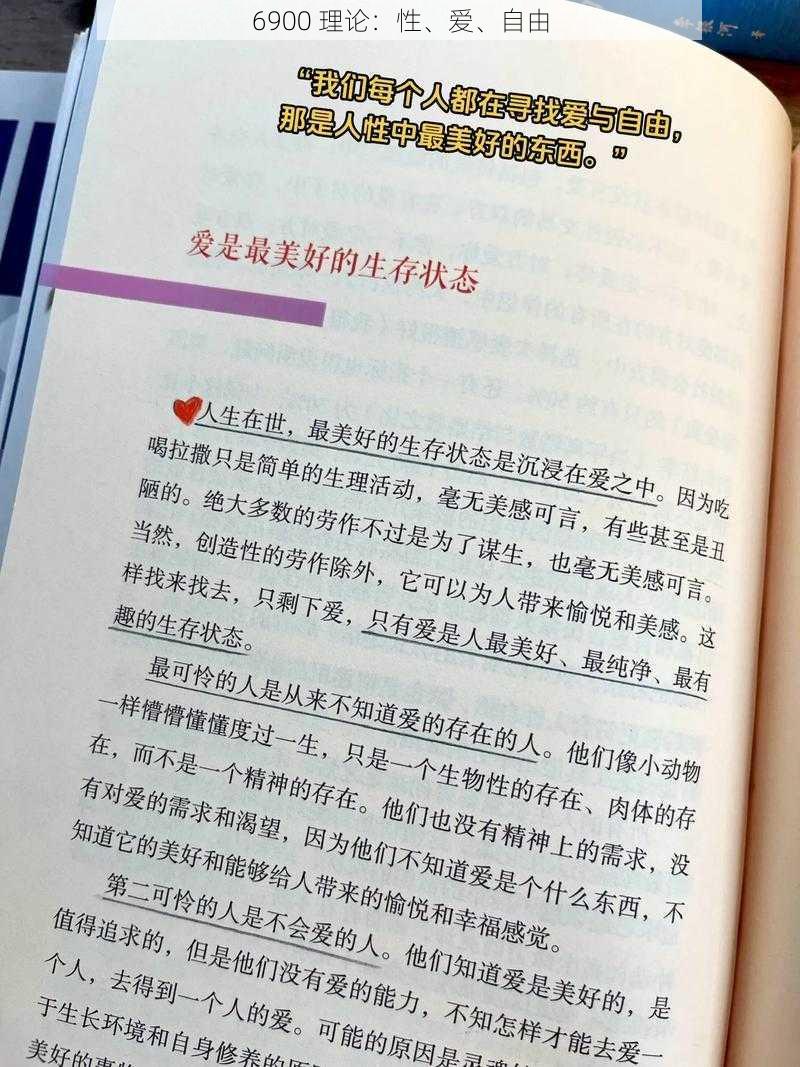 6900 理论：性、爱、自由
李银河 著
“我们每个人都在寻找爱与自由，
那是人性中最美好的东西。”
爱是最美好的生存状态
人生在世，最美好的生存状态是沉浸在爱之中。因为吃
喝拉撒只是简单的生理活动，毫无美感可言，有些甚至是丑
陋的。绝大多数的劳作不过是为了谋生，也毫无美感可言。
当然，创造性的劳作除外，它可以为人带来愉悦和美感。这
样找来找去，只剩下爱，只有爱是人最美好、最纯净、最有
趣的生存状态。
最可怜的人是从来不知道爱的存在的人。他们像小动物
一样懵懵懂懂度过一生，只是一个生物性的存在、肉体的存
在，而不是一个精神的存在。他们也没有精神上的需求，没
有对爱的需求和渴望，因为他们不知道爱是个什么东西，不
知道它的美好和能够给人带来的愉悦和幸福感觉。
第二可怜的人是不会爱的人。他们知道爱是美好的，是
值得追求的，但是他们没有爱的能力，不知怎样才能去爱一
个人，去得到一个人的爱。可能的原因是灵魂
于生长环境和自身修养的原
美好的事物